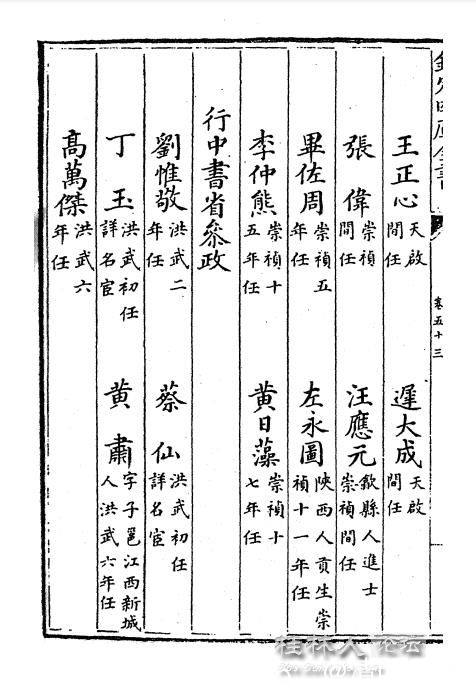 欽定四庫全書
卷五十三
王正心 天啟間任 遲大成 天啟間任
張偉 崇禎間任 汪應元 歙縣人進士崇禎間任
畢佐周 崇禎五年任 左永圖 陝西人貢生崇禎十一年任
李仲熊 崇禎十五年任 黃日藻 崇禎十七年任
行中書省叅政
劉惟敬 洪武二年任 蔡仙 洪武初任詳名宦
丁玉 洪武初任詳名宦 黃肅 字子邕江西新城人洪武六年任
高萬傑 洪武六年任
桂林人论坛